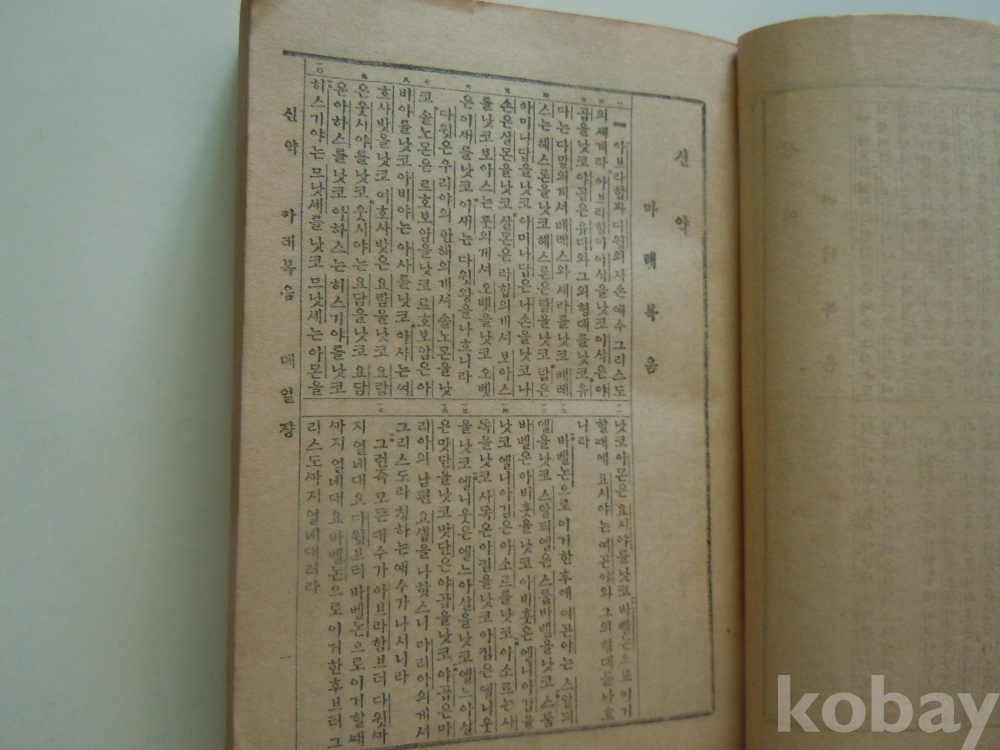 신약
마태복음
一 아브라함과 다윗의 자손 예수 그리스도
의 세계라 아브라함이 이삭을 낫코 이삭은 야
곱을 낫코 야곱은 유다와 그의 형뎨를 낫코 유
다는 다말의게셔 베레스와 세라를 낫코 베레
스는 헤스론을 낫코 헤스론은 람을 낫코 람은
아미나답을 낫코 아미나답은 나손을 낫코 나
손은 살몬을 낫코 살몬은 라합의게셔 보아스
를 낫코 보아스는 룻의게셔 오벳을 낫코 오벳
은 이새를 낫코 이새는 다윗왕을 나흐니라
다윗은 우리아의 안해의게셔 솔노몬을 낫
코 솔노몬은 르호보암을 낫코 르호보암은 아
비야를 낫코 아비야는 아사를 낫코 아사는 여
호사밧을 낫코 여호사밧은 요람을 낫코 요람
은 웃시야를 낫코 웃시야는 요담을 낫코 요담
은 아하스를 낫코 아하스는 히스기야를 낫코
히스기야는 므낫세를 낫코 므낫세는 아몬을
낫코 아몬은 요시야를 낫코 바벨논으로 이거
할 때에 요시야는 여곤야와 그의 형뎨를 나흐
니라
바벨논으로 이거한 후에 여곤야는 스알듸
엘을 낫코 스알듸엘은 스룹바벨을 낫코 스룹
바벨은 아비훗을 낫코 아비훗은 엘니아김을
낫코 엘니아김은 아소르를 낫코 아소르는 사
독을 낫코 사독은 아킴을 낫코 아킴은 엘니웃
을 낫코 엘니웃은 엘느아살을 낫코 엘느아살
은 맛단을 낫코 맛단은 야곱을 낫코 야곱은 마
리아의 남편 요셉을 나핫스니 마리아의게셔
그리스도라 칭하는 예수가 나시니라
그런즉 모든 대수가 아브라함브터 다윗까
지 열네대오 다윗브터 바벨논으로 이거할 때
까지 열네대요 바벨논으로 이거한 후브터 그
리스도까지 열네대러라
신약 마태복음 뎨일쟝 一
kobay